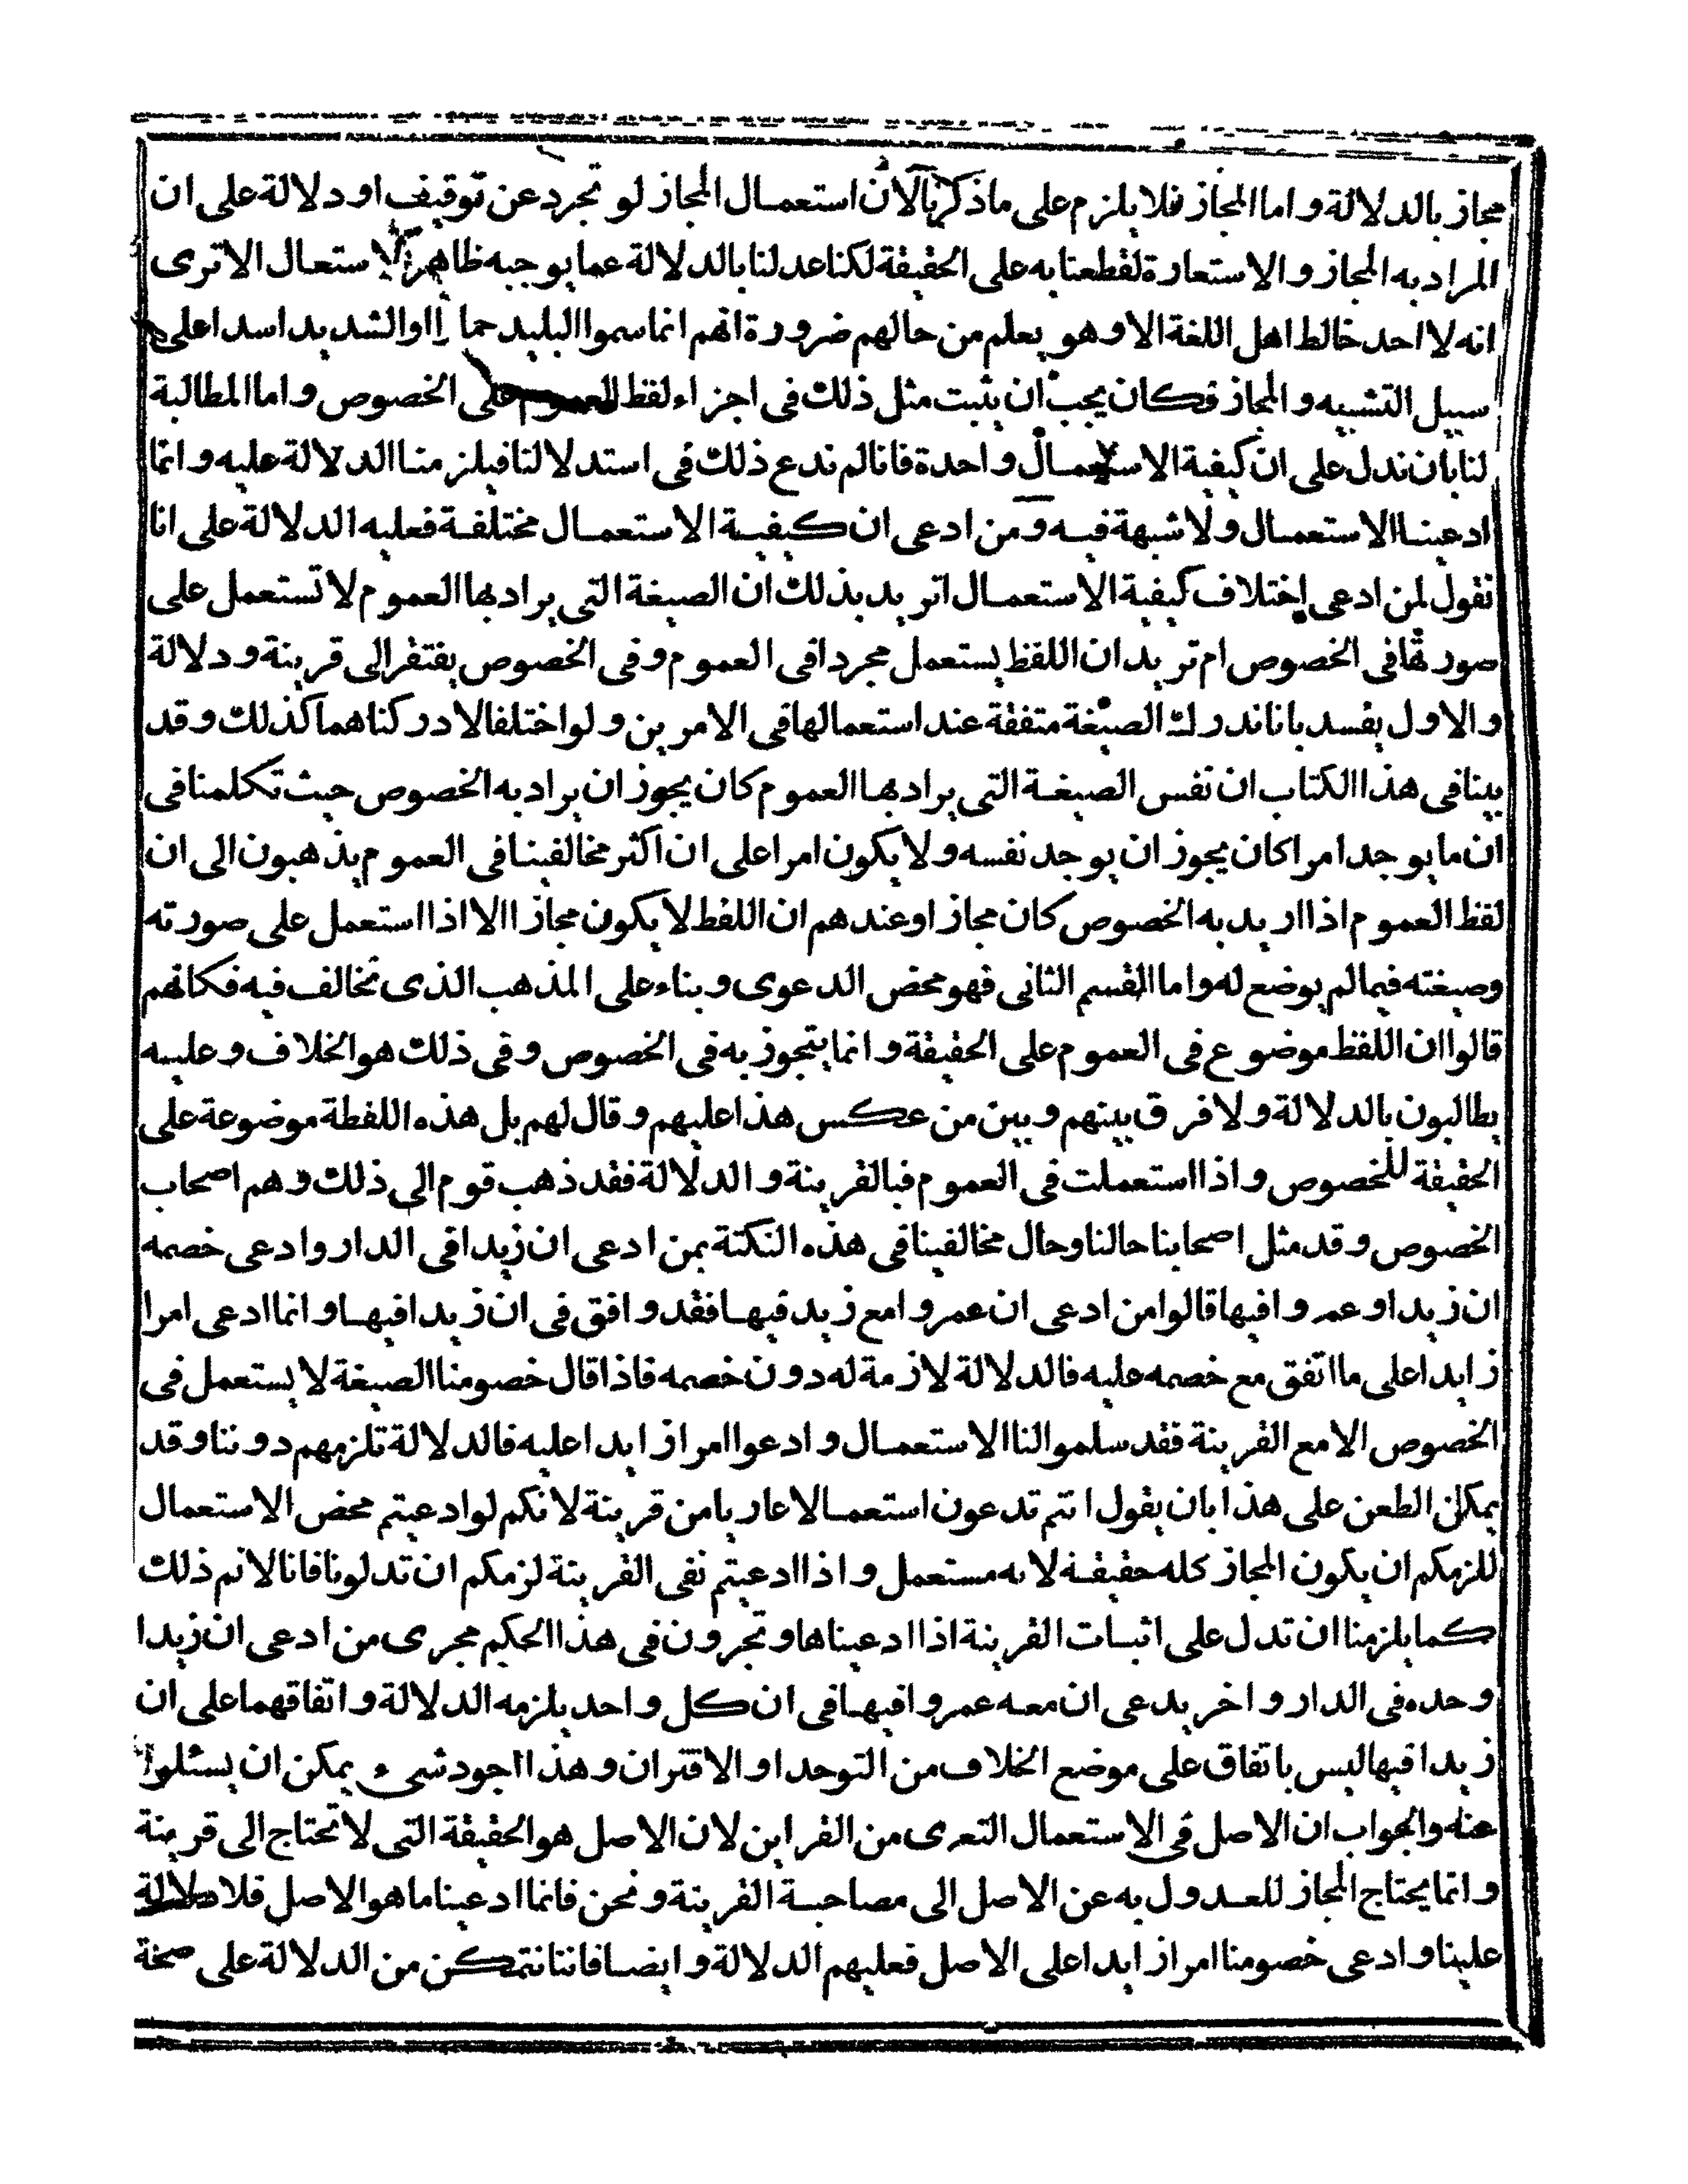 مجاز بالدلالة واما المجاز فلا يلزم على ما ذكرناه لان استعمال المجاز لو تجرد عن توقيف او دلالة على ان
المراد به المجاز والاستعارة لقطعنا به على الحقيقة لكنا عدلنا بالدلالة عما يوجبه ظاهر الاستعمال الا ترى
انه لا احد خالط اهل اللغة الا وهو يعلم من حالهم ضرورة انهم انما سموا البليد حمارا والشديد اسدا على
سبيل التشبيه والمجاز فكان يجب ان يثبت مثل ذلك فى اجزاء لفظ العموم على الخصوص واما المطالبة
لنا بان ندل على ان كيفية الاستعمال واحدة فانا لم ندع ذلك فى استدلالنا فيلزمنا الدلالة عليه وانما
ادعينا الاستعمال ولا شبهة فيه ومن ادعى ان كيفية الاستعمال مختلفة فعليه الدلالة على انا
نقول لمن ادعى اختلاف كيفية الاستعمال اتريد بذلك ان الصيغة التى يراد بها العموم لا تستعمل على
صورتها فى الخصوص ام تريد ان اللفظ يستعمل مجردا فى العموم وفى الخصوص يفتقر الى قرينة ودلالة
والاول يفسد بانا ندرك الصيغة متفقة عند استعمالها فى الامرين ولو اختلفا لادركناهما كذلك وقد
بينا فى هذا الكتاب ان نفس الصيغة التى يراد بها العموم كان يجوز ان يراد به الخصوص حيث تكلمنا فى
ان ما يوجد امرا كان يجوز ان يوجد نفسه ولا يكون امرا على ان اكثر مخالفينا فى العموم يذهبون الى ان
لفظ العموم اذا اريد به الخصوص كان مجازا وعندهم ان اللفظ لا يكون مجازا الا اذا استعمل على صورته
وصيغته فيما لم يوضع له واما القسم الثانى فهو محض الدعوى وبناء على المذهب الذى نخالف فيه فكانهم
قالوا ان اللفظ موضوع فى العموم على الحقيقة وانما يتجوز به فى الخصوص وفى ذلك هو الخلاف وعليه
يطالبون بالدلالة ولا فرق بينهم وبين من عكس هذا عليهم وقال لهم بل هذه اللفظة موضوعة على
الحقيقة للخصوص واذا استعملت فى العموم فبالقرينة والدلالة فقد ذهب قوم الى ذلك وهم اصحاب
الخصوص وقد مثل اصحابنا حالنا وحال مخالفينا فى هذه النكتة بمن ادعى ان زيدا فى الدار وادعى خصمه
ان زيدا وعمروا فيها قالوا من ادعى ان عمروا مع زيد فيها فقد وافق فى ان زيدا فيها وانما ادعى امرا
زايدا على ما اتفق مع خصمه عليه فالدلالة لازمة له دون خصمه فاذا قال خصومنا الصيغة لا يستعمل فى
الخصوص الا مع القرينة فقد سلموا لنا الاستعمال وادعوا امرا زايدا عليه فالدلالة تلزمهم دوننا وقد
يمكن الطعن على هذا بان يقول انتم تدعون استعمالا عاريا من قرينة لانكم لو ادعيتم محض الاستعمال
للزمكم ان يكون المجاز كله حقيقة لانه مستعمل واذا ادعيتم نفى القرينة لزمكم ان تدلونا فانا لا نم ذلك
كما يلزمنا ان تدل على اثبات القرينة اذا ادعيناها وتجرون فى هذا الحكم مجرى من ادعى ان زيدا
وحده فى الدار واخر يدعى ان معه عمروا فيها فى ان كل واحد يلزمه الدلالة واتفاقهما على ان
زيدا فيها ليس باتفاق على موضع الخلاف من التوحد او الاقتران وهذا اجود شىء يمكن ان يسئلوا
عنه والجواب ان الاصل فى الاستعمال التعرى من القراين لان الاصل هو الحقيقة التى لا تحتاج الى قرينة
وانما يحتاج المجاز للعدول به عن الاصل الى مصاحبة القرينة ونحن فانما ادعينا ما هو الاصل فلا دلالة
علينا وادعى خصومنا امرا زايدا على الاصل فعليهم الدلالة وايضا فاننا نتمكن من الدلالة على صحة